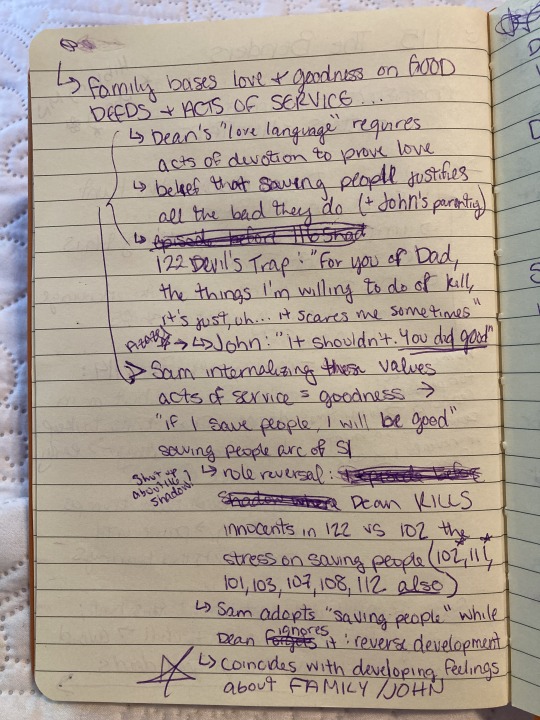 ↳ family bases love + goodness on GOOD
DEEDS + ACTS OF SERVICE...
↳ Dean's "love language" requires
acts of devotion to prove love
↳ belief that saving people justifies
all the bad they do (+ John's parenting)
↳ episode before 116 Shad
122 Devil's Trap: "For you of Dad,
the things I'm willing to do of kill,
it's just, uh... it scares me sometimes"
Azazel → ↳ John: "it shouldn't. You did good"
→ Sam internalizing these values
acts of service = goodness →
"if I save people, I will be good"
saving people arc of S1
Shut up
about 116
shadow!
↳ role reversal: episode before
Shadow where Dean KILLS
innocents in 122 vs 102 the
stress on saving people (102, 111,
101, 103, 107, 108, 112 also)
↳ Sam adopts "saving people" while
Dean forgets ignores it: reverse development
↳ coincides with developing feelings
about FAMILY/JOHN